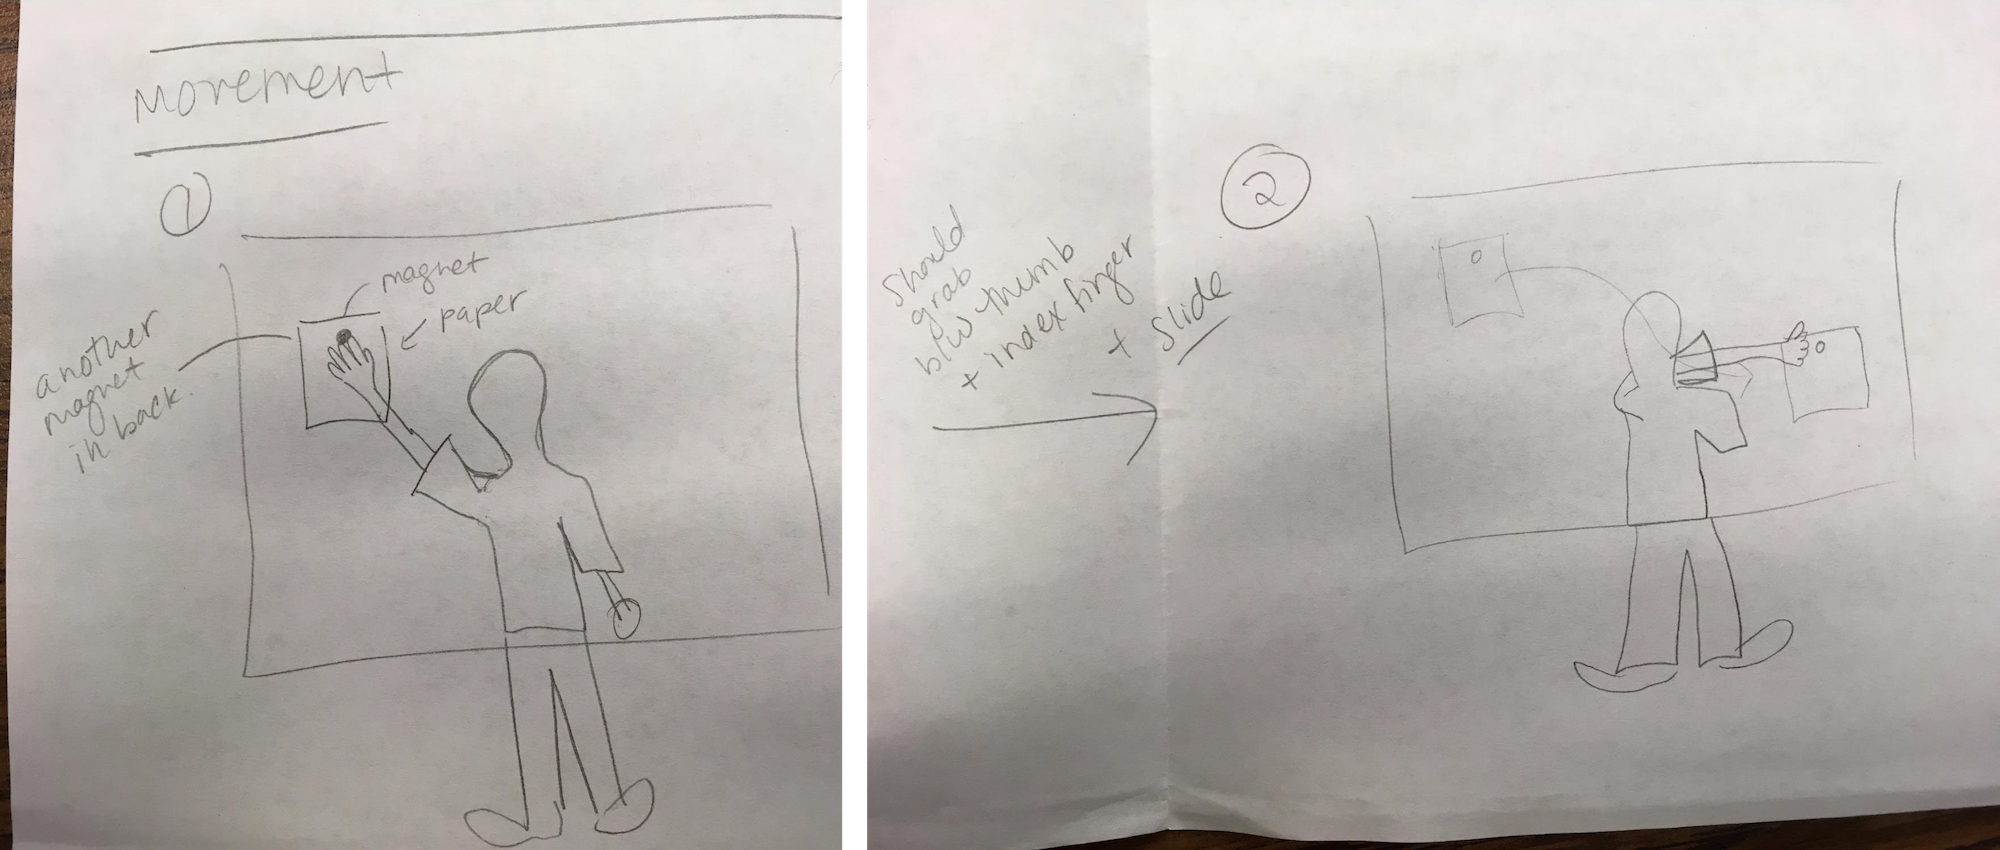 Movement
1
magnet
paper
another
magnet
in back.
2
Should
grab
b/w thumb
+ index finger
+ Slide